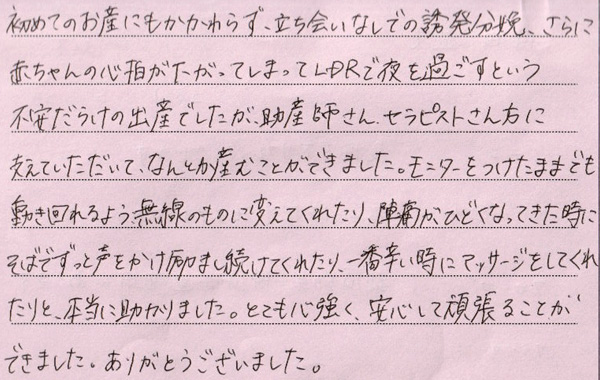 初めてのお産にもかかわらず、立ち会いなしでの誘発分娩、さらに
赤ちゃんの心拍がたがってしまってLDRで夜を過ごすという
不安だらけの出産でしたが、助産師さん、セラピストさん方に
支えていただいて、なんとか産むことができました。モニターをつけたままでも
動き回れるよう無線のものに変えてくれたり、陣痛がひどくなってきた時に
そばでずっと声をかけ励まし続けてくれたり、一番辛い時にマッサージをしてくれ
たりと、本当に助かりました。とても心強く、安心して頑張ることが
できました。ありがとうございました。